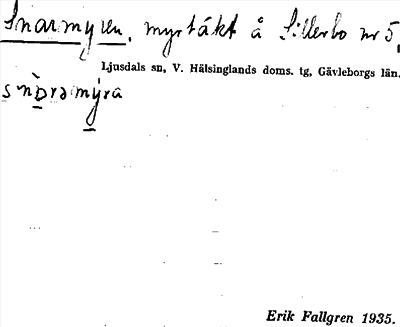 Snarmyren, myrtäkt å Sillerbo nr 5,
Ljusdals sn, V. Hälsinglands doms. tg, Gävleborgs län.
snɒ̀rəmỳra
Erik Fallgren 1935.